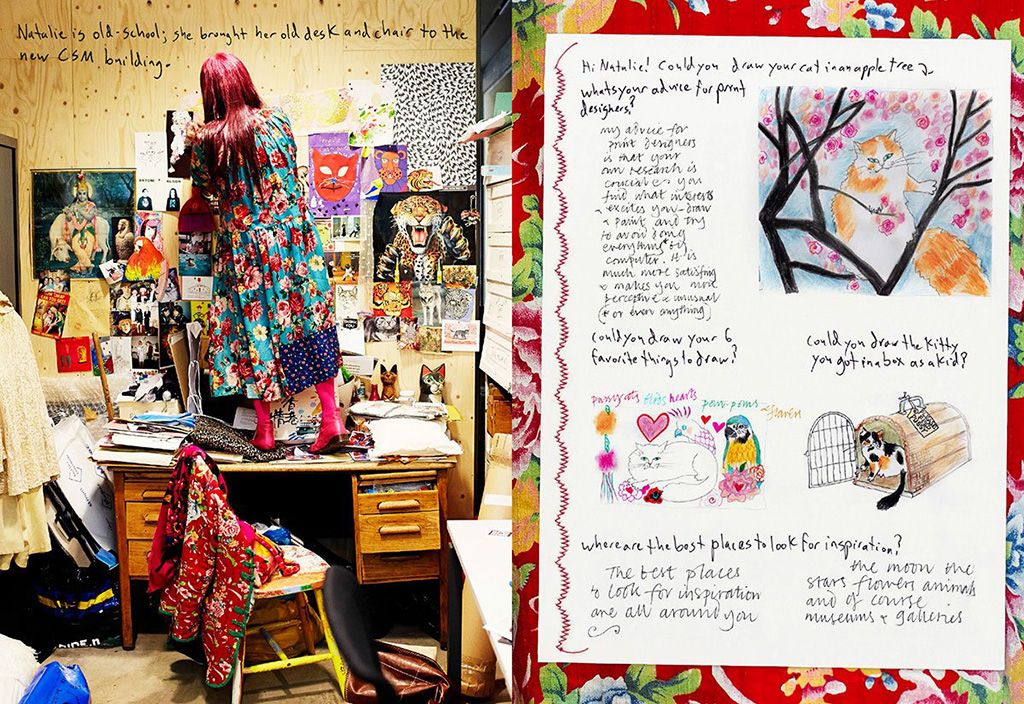 Natalie is old-school; she brought her old desk and chair to the
new CSM building.
Hi Natalie! Could you draw your cat in an apple tree?
whats your advice for print
designers?
my advice for
print designers
is that your
own research is
crucial & you
find what interests
& excites you - draw
& paint and try
to avoid doing
everything* by
computer. it is
much more satisfying
& makes you more
perceptive & unusual
(* or even anything)
Could you draw your 6
favorite things to draw?
pussycats birds hearts
pom-poms
flowers
Could you draw the kitty
you got in a box as a kid?
where are the best places to look for inspiration?
The best places
to look for inspiration
are all around you
the moon the
stars flowers animals
and of course
museums & galleries